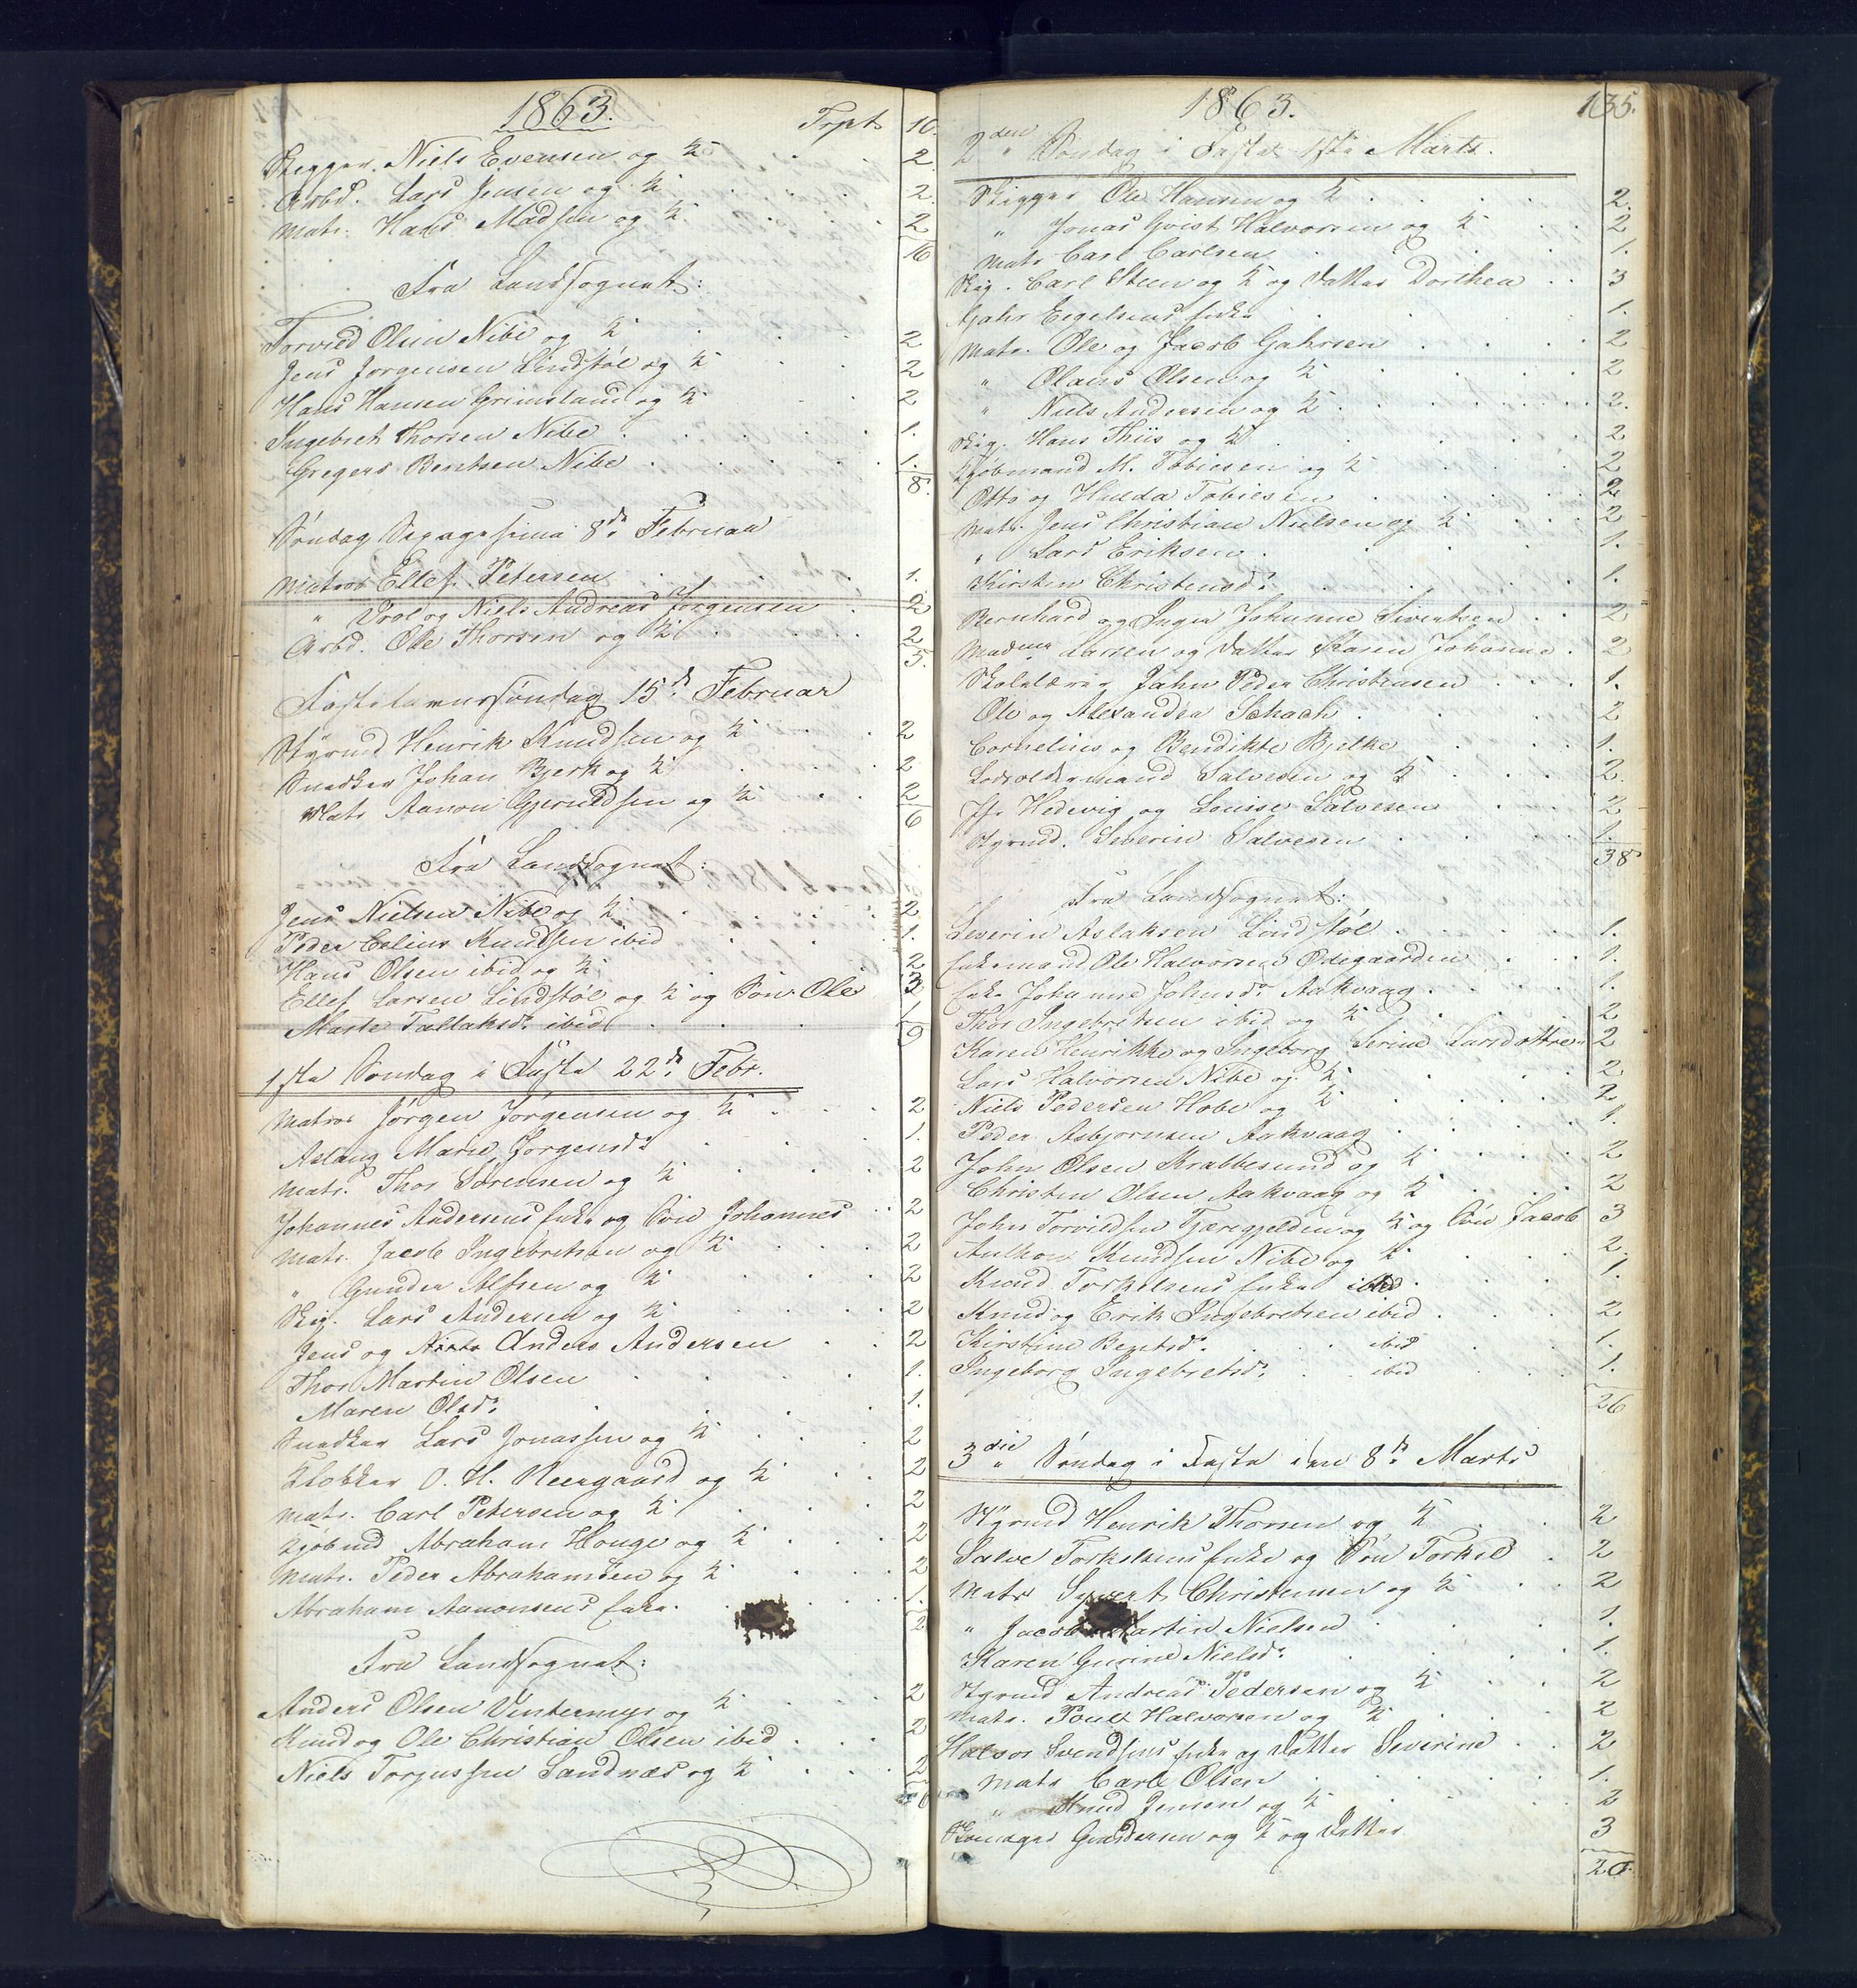 1863.
Trpt. 10.
Skipper. Niels Evensen og K. 2.
Arbd. Lars Jensen og K. 2.
Matr. Hans Madsen og K. 2
16
Fra Landsognet:
Torvild Olsen Nibe og K. 2
Jens Jorgensen Lindstøl og K 2
Hans Hansen Grimsland og K 2
Ingebret Thorsen Nibe 1.
Gregers Bentsen Nibe 1.
8.
Søndag Sexagesima 8de Februar
Matros Ellef Petersen 1.
" og Niels Andreas Jorgensen 2
Arbd. Ole Thorsen og K 2
5.
Fastelavnssøndag 15de Februar
Styrmd Henrik Knudsen og K 2
Snedker Johan Bjerk og K 2
Matr Aanon Gjeruldsen og K 2
6
Fra Landsognet:
Jens Nielsen Nibe og K 2.
Peder Celius Knudsen ibid 1.
Hans Olsen ibid og K 2
Ellef Larsen Lindstøl og K og Søn Ole 3
Marte Tallaksdr. ibid 1
9
1ste Søndag i Faste 22de Febr.
Matros Jörgen Jörgensen og K 2
Aslaug Marie Jorgensdr 1.
Matr. Thor Sørensen og K 2
Johannes Andersens Enke og Søn Johannes 2
Matr. Jacob Ingebretsen og K 2
" Gunder Alfsen og K 2
Skip. Lars Andersen og K 2
Jens og Anders Andersen 2
Thor Martin Olsen 1.
Maren Olsdr. 1.
Snedker Lars Jonassen og K 2
Klokker O. H. Neergaard og K 2
Matr. Carl Petersen og K 2
Kjøbmd Abraham Houge og K 2
Matr. Peder Abrahamsen og K 2
Abraham Aanonsens Enke. 1.
Fra Landsognet:
Anders Olsen Vintermyr og K 2
Knud og Ole Christian Olsen ibid 2
Niels Torgussen Sandnæs og K 2
1863.
135.
2den Søndag i Faste 1ste Marts.
Skipper Ole Hansen og K 2.
" Jonas Qvist Halvorsen og K 2
Matr Carl Carlsen 1.
Skip. Carl Steen og K og Datter Dorthea 3
Gjahr Eegelsens Enke 1.
Matr. Ole og Jacob Gahrsen 2
" Olaus Olsen og K 2
" Niels Andersen og K 2.
Skip. Hans Thiis og K 2
Kjøbmand M. Tobiesen og K 2
Otto og Hulda Tobiesen 2
Matr. Jens Christian Nielsen og K 2
" Lars Eriksen 1.
Kirsten Christensdr. 1.
Bernhard og Inger Johanne Sivertsen 2
Madme Larsen og Datter Karen Johanne 2
Skolelærer Jahn Peder Christensen 1.
Ole og Alexandra Schach 2
Cornelius og Bendikte Bjelke 1.
Lodsoldermand Salvesen og K 2
Jfr Hedevig og Louise Salvesen 2
Styrmd. Severin Salvesen 1.
38
Fra Landsognet:
Severin Aslaksen Lindstøl 1.
Enkemand Ole Halvorsen Ødegaarden 1.
Enke Johanne Johnsdr. Aakvaag 1.
Thor Ingebretsen ibid og K 2
Karen Henrikke og Ingeborg Serine Larsdøttre 2
Lars Halvorsen Nibe og K 2
Niels Pedersen Hobe og K 2.
Peder Asbjørnsen Aakvaag 1.
John Olsen Krabbesund og K 2
Christen Olsen Aakvaag og K 2
John Torvildsen Tjæregjelden og K og Søn Jacob 3
Anthon Knudsen Nibe og K 2.
Knud Torkelsens Enke ibid 1.
Knud og Erik Ingebretsen ibid 2
Kirstine Bentsdr. ibid 1.
Ingeborg Ingebretsdr. ibid 1.
26
3die Søndag i Faste den 8de Marts
Styrmd Henrik Thorsen og K 2
Salve Torkelsens Enke og Søn Torkel 2
Matr Syvert Christensen og K 2
" Jacob Martin Nielsen 1.
Karen Gurine Nielsdr. 1.
Styrmd Andreas Pedersen og K 2
Matr. Poul Halvorsen og K 2
Halvor Svendsens Enke og Datter Severine 2
Matr Carl Olsen 1.
" Knud Jensen og K 2
Skomager Gundersen og K og Datter 3
20.